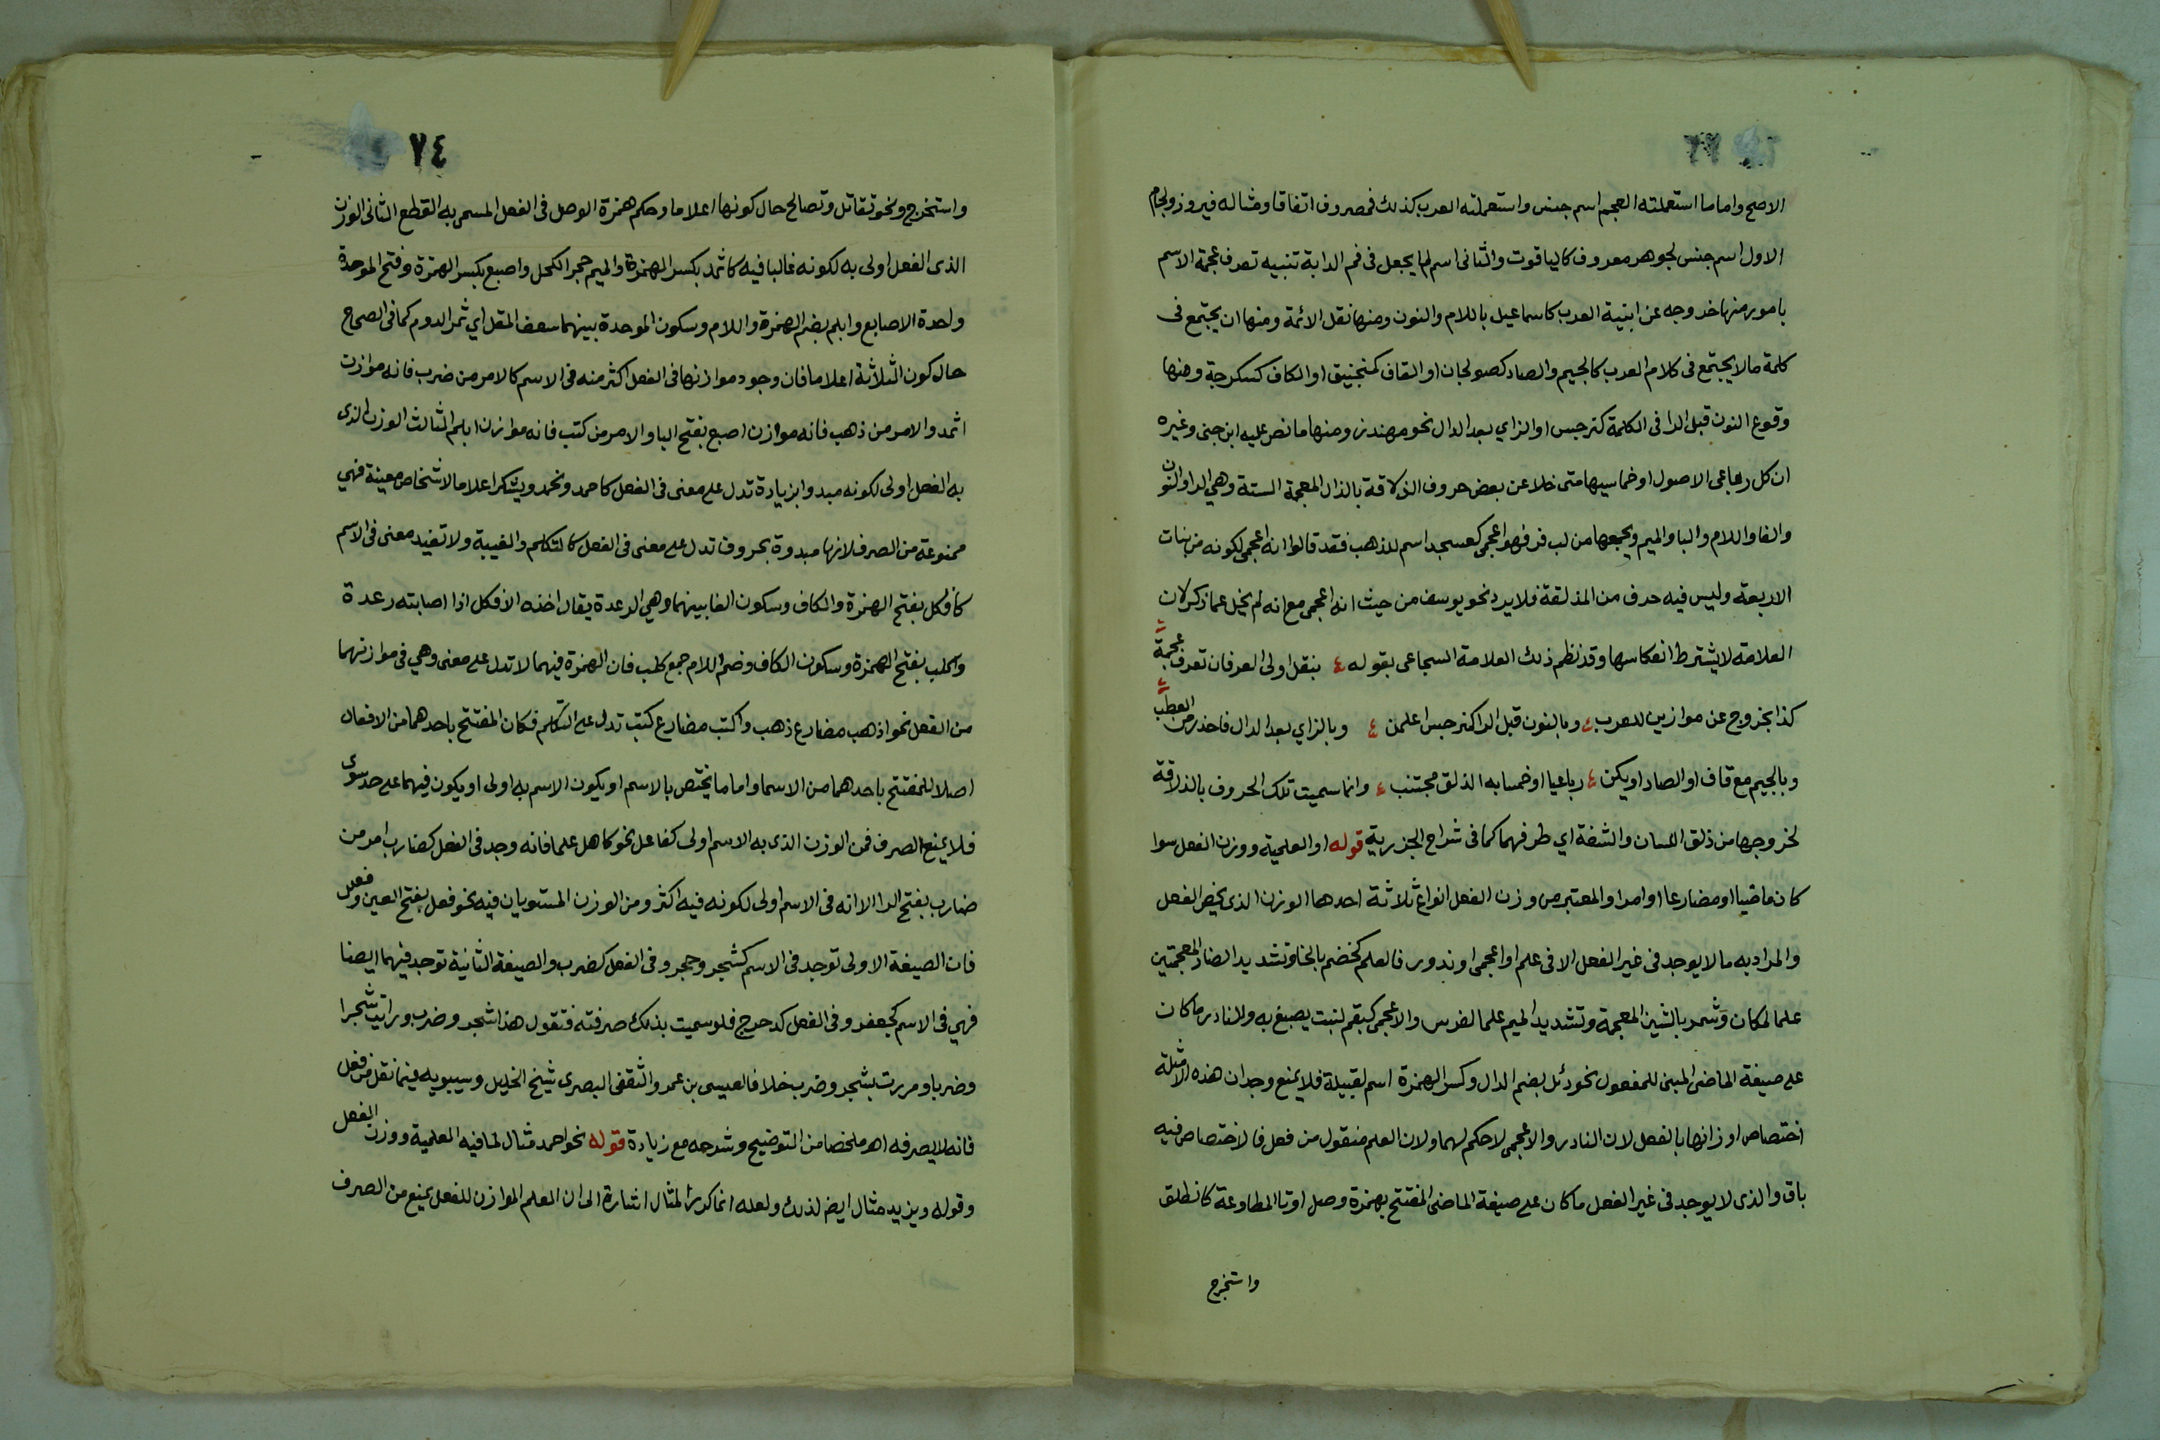 الاصح واما ما استعملته العجم اسم جنس واستعملته العرب كذلك فمصروف اتفاقا ومثاله فيروز ولجام
الاول اسم جنس لجوهر معروف كالياقوت والثانى اسم لما يجعل فى فم الدابة تنبيه تعرف عجمة الاسم
بامور منها خروجه عن ابنية العرب كاسماعيل باللام والنون ومنها نقل الائمة ومنها ان يجتمع فى
كلمة ما لا يجتمع فى كلام العرب كالجيم والصاد كصولجان او القاف كمنجنيق او الكاف كسكرجة ومنها
وقوع النون قبل الرا فى الكلمة كنرجس او الزاي بعد الدال نحو مهندز ومنها ما نص عليه ابن جنى وغيره
ان كل رباعى الاصول او خماسيها متى خلا عن بعض حروف الذلاقة بالذال المعجمة الستة وهي الرا والنون
والفا واللام والبا والميم ويجمعها من لب فر فهو اعجمى كعسجد اسم للذهب فقد قالوا انه اعجمى لكونه من بنات
الاربعة وليس فيه حرف من المذلقة فلا يرد نحو يوسف من حيث انه اعجمى مع انه لم يخل عما ذكر لان
العلامة لا يشترط انعكاسها وقد نظم ذلك العلامة السجاعى بقوله بنقل اولى العرفان تعرف عجمة
كذا بخروج عن موازين للعرب وبالنون قبل الرا كنرجس اعلمن وبالزاي بعد الدال فاحذر من العطب
وبالجيم مع قاف او الصاد او يكن رباعيا او خمسا به الذلق مجتنب وانما سميت تلك الحروف بالذلاقة
لخروجها من ذلق اللسان والشفة اي طرفهما كما فى شراح الجزرية قوله او العلمية ووزن الفعل سوا
كان ماضيا او مضارعا او امرا والمعتبر من وزن الفعل انواع ثلاثة احدها الوزن الذى يخص الفعل
والمراد به ما لا يوجد فى غير الفعل الا فى علم او اعجمى او ندور فالعلم كخضم بالخا وتشديد الضاد المعجمتين
علما لمكان وشمر بالشين المعجمة وتشديد الميم علما لفرس والاعجمى كبقم لنبت يصبغ به والنادر ما كان
على صيغة الماضى المبنى للمفعول نحو دئل بضم الدال وكسر الهمزة اسم لقبيلة فلا يمنع وجدان هذه الامثلة
اختصاص اوزانها بالفعل لان النادر والاعجمى لا حكم لهما ولان العلم منقول من فعل فالاختصاص فيه
باق والذى لا يوجد فى غير الفعل ما كان على صيغة الماضى المفتتح بهمزة وصل او تا المطاوعة كانطلق
واستخرج
٧٤
واستخرج ونحو تقاتل وتصالح حال كونها اعلاما وحكم همزة الوصل فى الفعل المسمى به القطع الثانى الوزن
الذى الفعل اولى به لكونه غالبا فيه كاثمد بكسر الهمزة والميم حجر الكحل واصبع بكسر الهمزة وفتح الموحدة
واحدة الاصابع وابلم بضم الهمزة واللام وسكون الموحدة بينهما سعف المقل اي ثمر الدوم كما فى الصحاح
حال كون الثلاثة اعلاما فان وجود موازنها فى الفعل اكثر منه فى الاسم كالامر من ضرب فانه موازن
اثمد والامر من ذهب فانه موازن اصبع بفتح البا والامر من كتب فانه موازن ابلم الثالث الوزن الذى
به الفعل اولى لكونه مبدوا بزيادة تدل على معنى فى الفعل كاحمد ونحمد ويشكر اعلاما لاشخاص معينة فهي
ممنوعة من الصرف لانها مبدوة بحروف تدل على معنى فى الفعل كالتكلم والغيبة ولا تفيد معنى فى الاسم
كافكل بفتح الهمزة والكاف وسكون الفا بينهما وهي الرعدة يقال اخذه الافكل اذا اصابته رعدة
واكلب بفتح الهمزة وسكون الكاف وضم اللام جمع كلب فان الهمزة فيهما لا تدل على معنى وهي فى موازنهما
من الفعل نحو اذهب مضارع ذهب واكتب مضارع كتب تدل على التكلم فكان المفتتح باحدهما من الافعال
اصلا للمفتتح باحدهما من الاسما واما ما يختص بالاسم او يكون الاسم به اولى او يكون فيهما على حد سوى
فلا يمنع الصرف فمن الوزن الذى به الاسم اولى كفاعل نحو كاهل علما فانه وجد فى الفعل كضارب امر من
ضارب بفتح الرا الا انه فى الاسم اولى لكونه فيه اكثر ومن الوزن المستويان فيه نحو فعل بفتح العين وفعلل
فان الصيغة الاولى توجد فى الاسم كشجر وحجر وفى الفعل كضرب والصيغة الثانية توجد فيهما ايضا
فهي فى الاسم كجعفر وفى الفعل كدحرج فلو سميت بذلك صرفته فتقول هذا شجر وضرب ورايت شجرا
وضربا ومررت بشجر وضرب خلافا لعيسى بن عمرو الثقفى البصرى شيخ الخليل وسيبويه فيما نقل من فعل
فانه لا يصرفه اهـ ملخصا من التوضيح وشرحه مع زيادة قوله نحو احمد مثال لما فيه العلمية ووزن الفعل
وقوله ويزيد مثال ايض لذلك ولعله انما كرر المثال اشارة الى ان العلم الموازن للفعل يمنع من الصرف